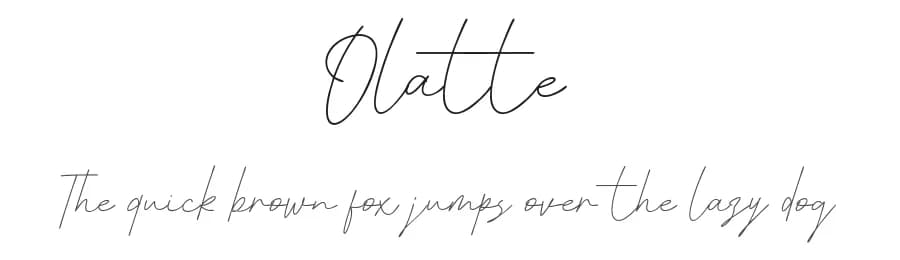 Olatte
The quick brown fox jumps over the lazy dog